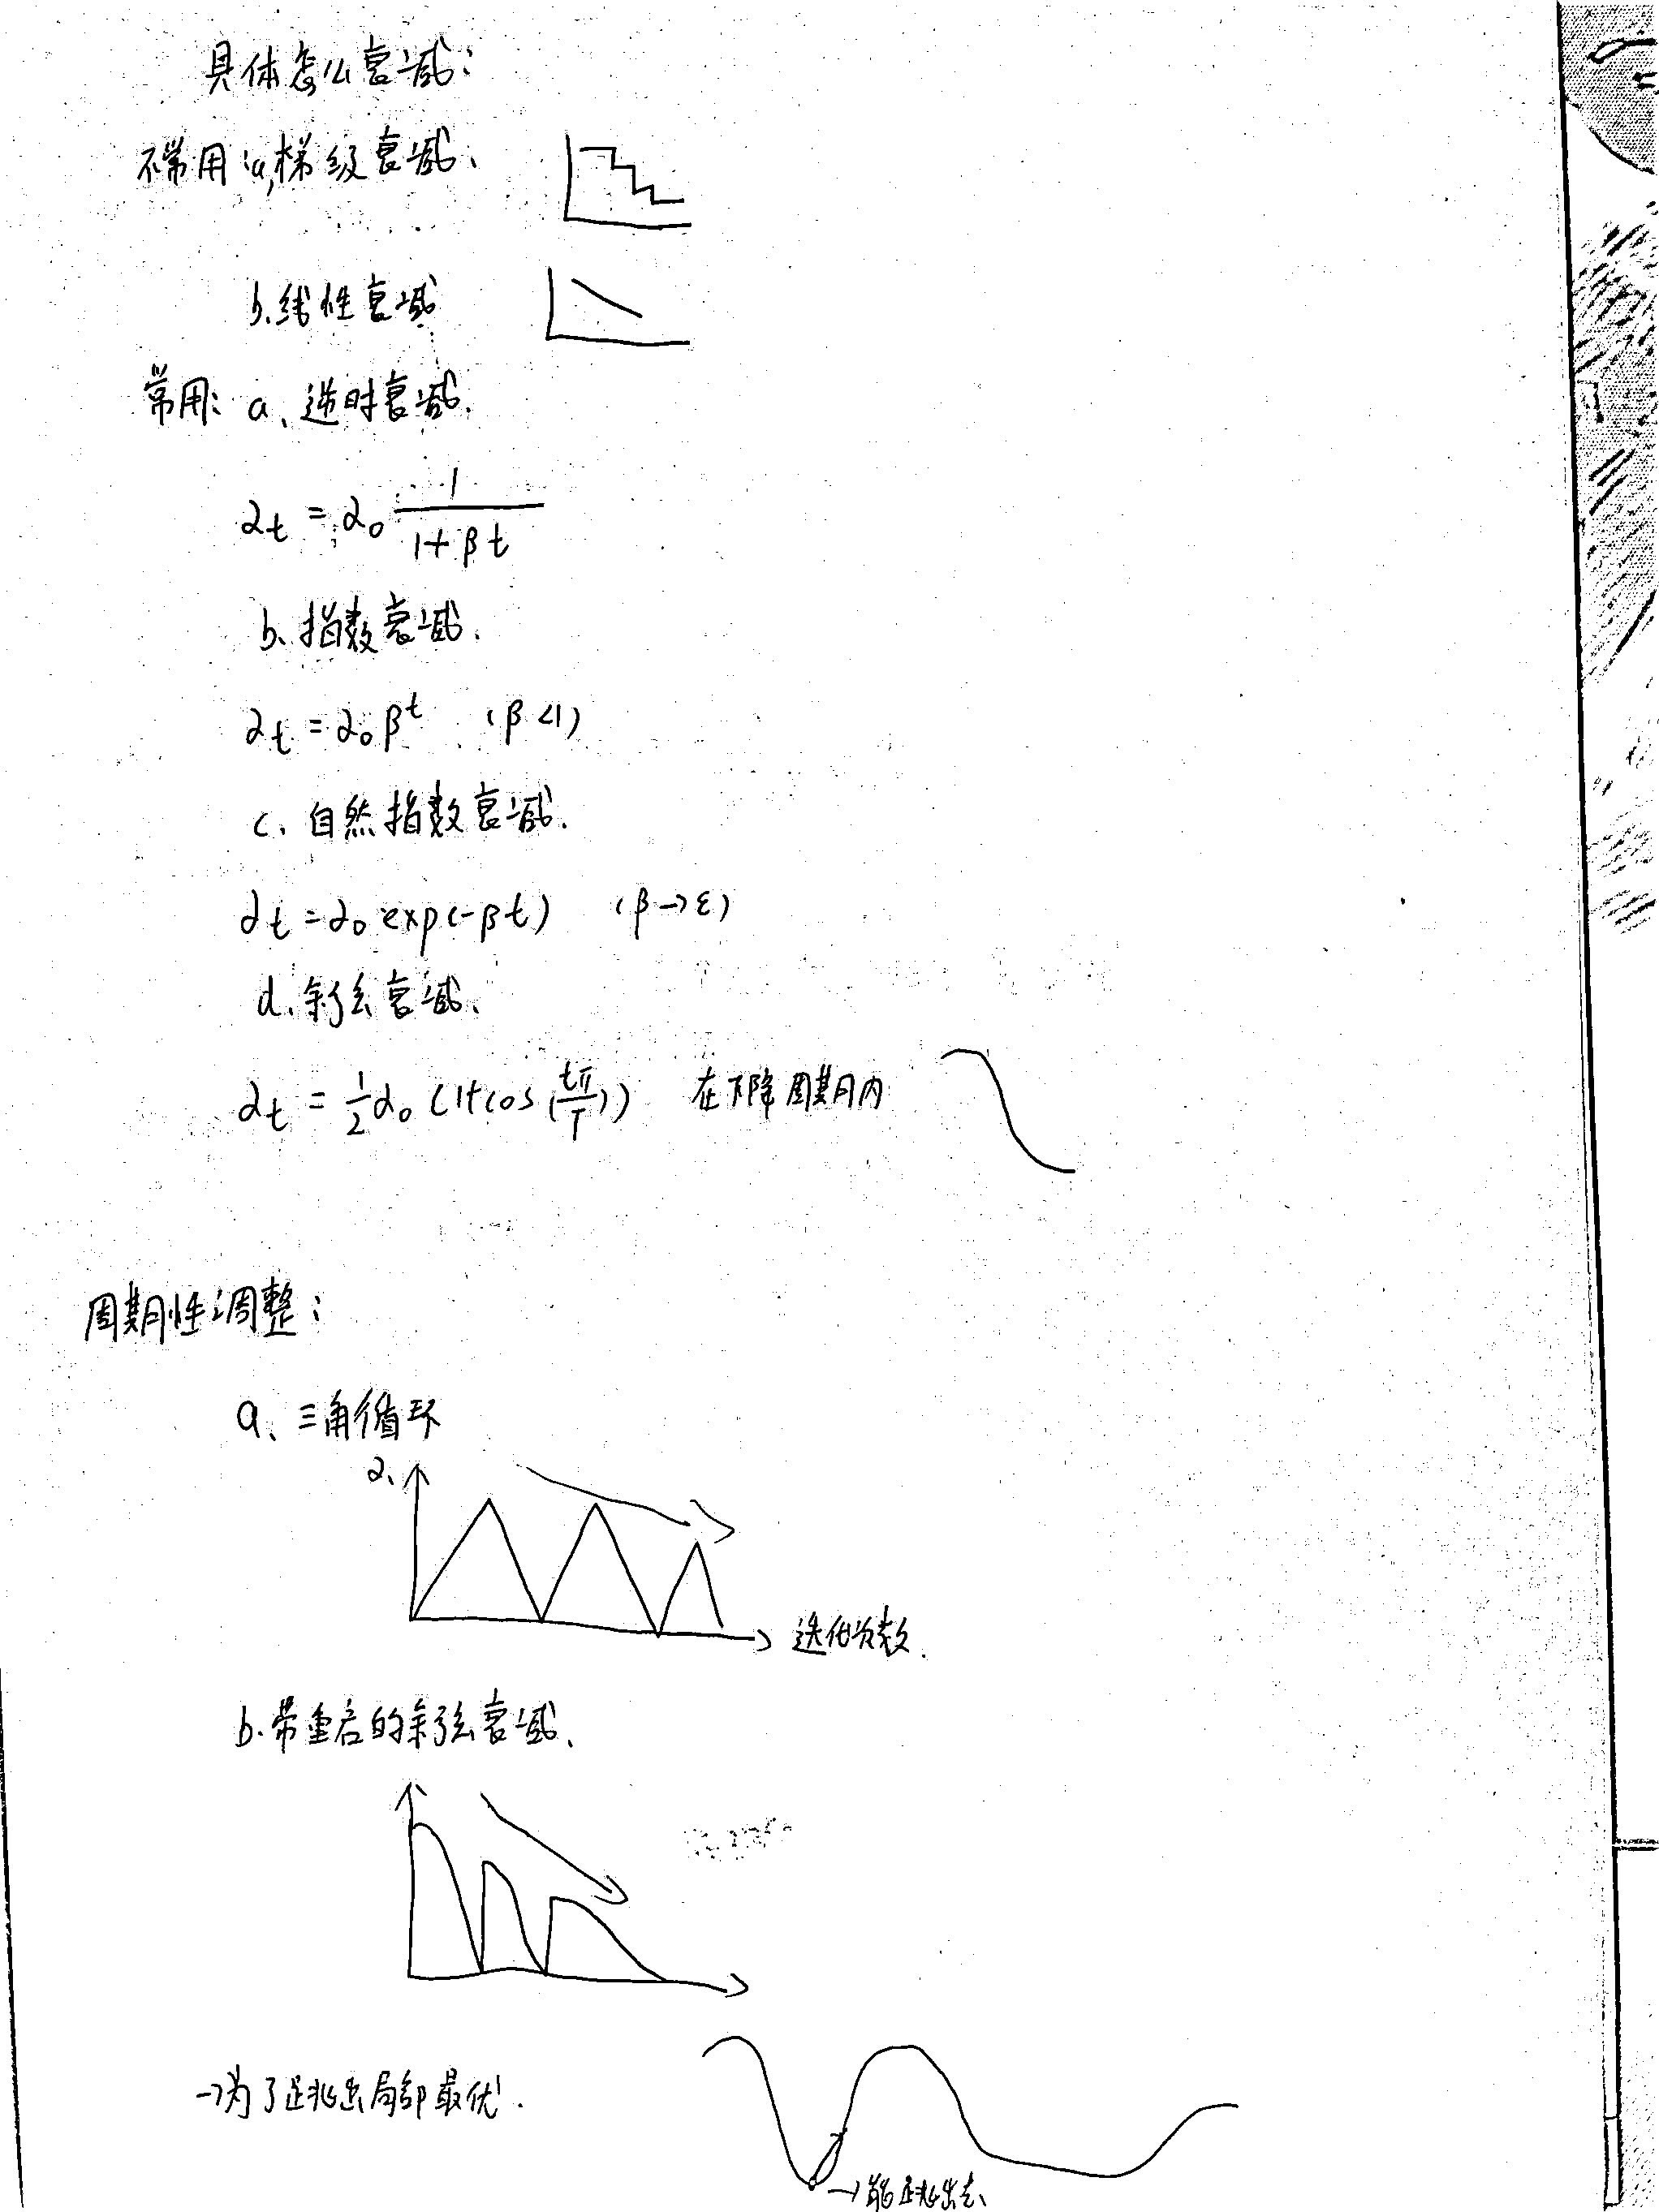 具体怎么衰减：
不常用：a,梯级衰减、
b.线性衰减
常用：a、逆时衰减.
αt = α0 1/(1+βt)
b、指数衰减.
αt = α0 β^t (β<1)
c、自然指数衰减.
αt = α0 exp(-βt) (β→ε)
d.余弦衰减、
αt = 1/2 α0 (1+cos(tπ/T)) 在下降周期内
周期性调整：
a、三角循环
α、
迭代次数.
b.带重启的余弦衰减、
→为了跳出局部最优.
→能跳出去、